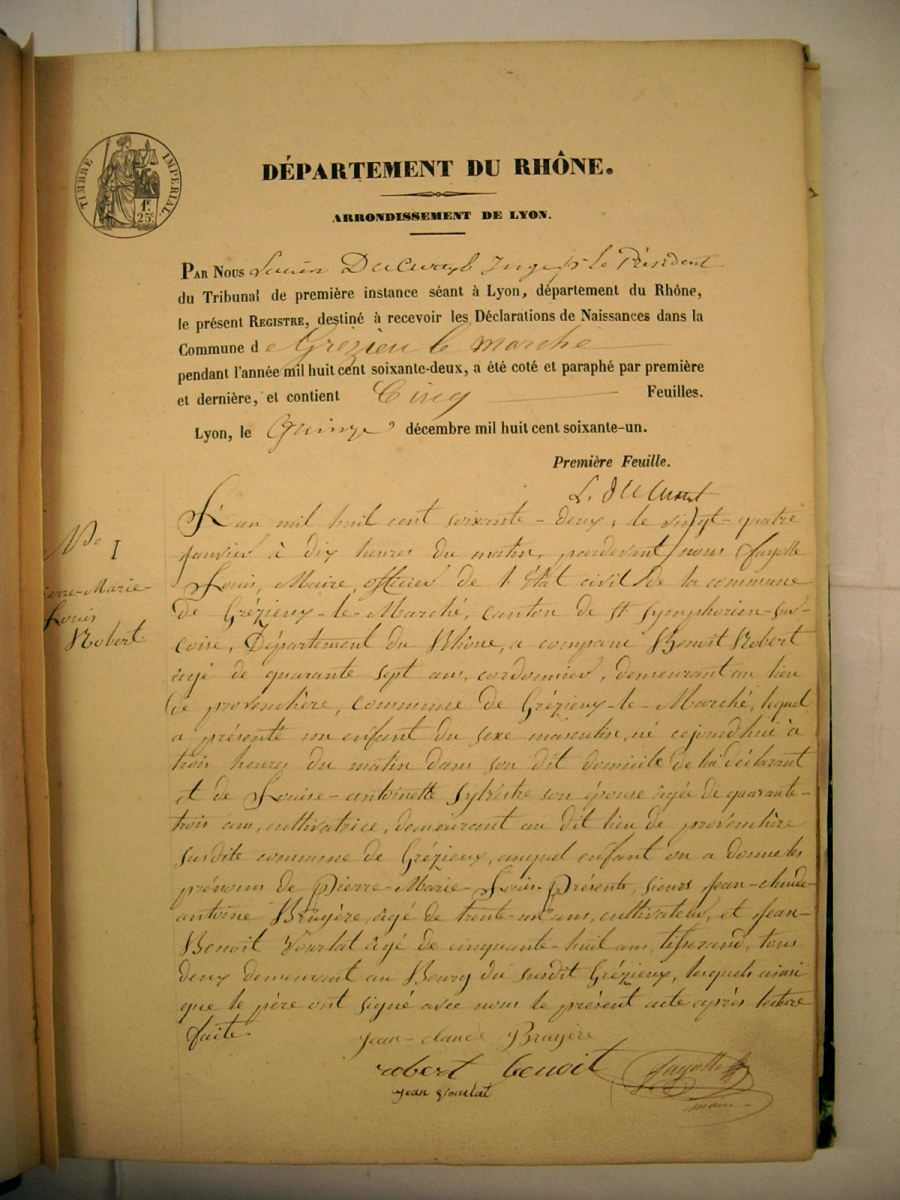 TIMBRE IMPERIAL
1f.
25c.
DÉPARTEMENT DU RHÔNE.
ARRONDISSEMENT DE LYON.
PAR NOUS Lucien Ducurtyl Juge pr le Président
du Tribunal de première instance séant à Lyon, département du Rhône,
le présent REGISTRE, destiné à recevoir les Déclarations de Naissances dans la
Commune de Grezieu le marche
pendant l'année mil huit cent soixante-deux, a été coté et paraphé par première
et dernière, et contient Cinq Feuilles.
Lyon, le Quinze décembre mil huit cent soixante-un.
Première Feuille.
No 1
erre-Marie-
Louis
Robert
L'an mil huit cent soixante-deux, le vingt-quatre
janvier à dix heures du matin, pardevant nous fayolle
Louis, Maire, officier de l'état civil de la commune
de Grézieux-le-Marché, canton de St Symphorien-sur-
coise, Département du Rhône, a comparu Benoît Robert
âgé de quarante sept ans, cordonnier, demeurant au lieu
de provenchère, commune de Grézieux-le-Marché, lequel
a présenté un enfant du sexe masculin, né cejourd'hui à
trois heures du matin dans son dit domicile de lui déclarant
et de Louise-antoinette Sylvestre son épouse âgée de quarante-
trois ans, cultivatrice, demeurant au dit lieu de provenchère
susdite commune de Grézieux, auquel enfant on a donné les
prénoms de Pierre-Marie-Louis. Présents, sieurs Jean-claude-
antoine Bruyère, âgé de trente-un ans, cultivateur, et Jean-
Benoît Vourlat âgé de cinquante-huit ans, tisserand, tous
deux demeurant au Bourg du susdit Grézieux, lesquels ainsi
que le père ont signé avec nous le présent acte après lecture
faite.
Jean-claude Bruyère
robert benoit
fayolle
maire
jean vourlat